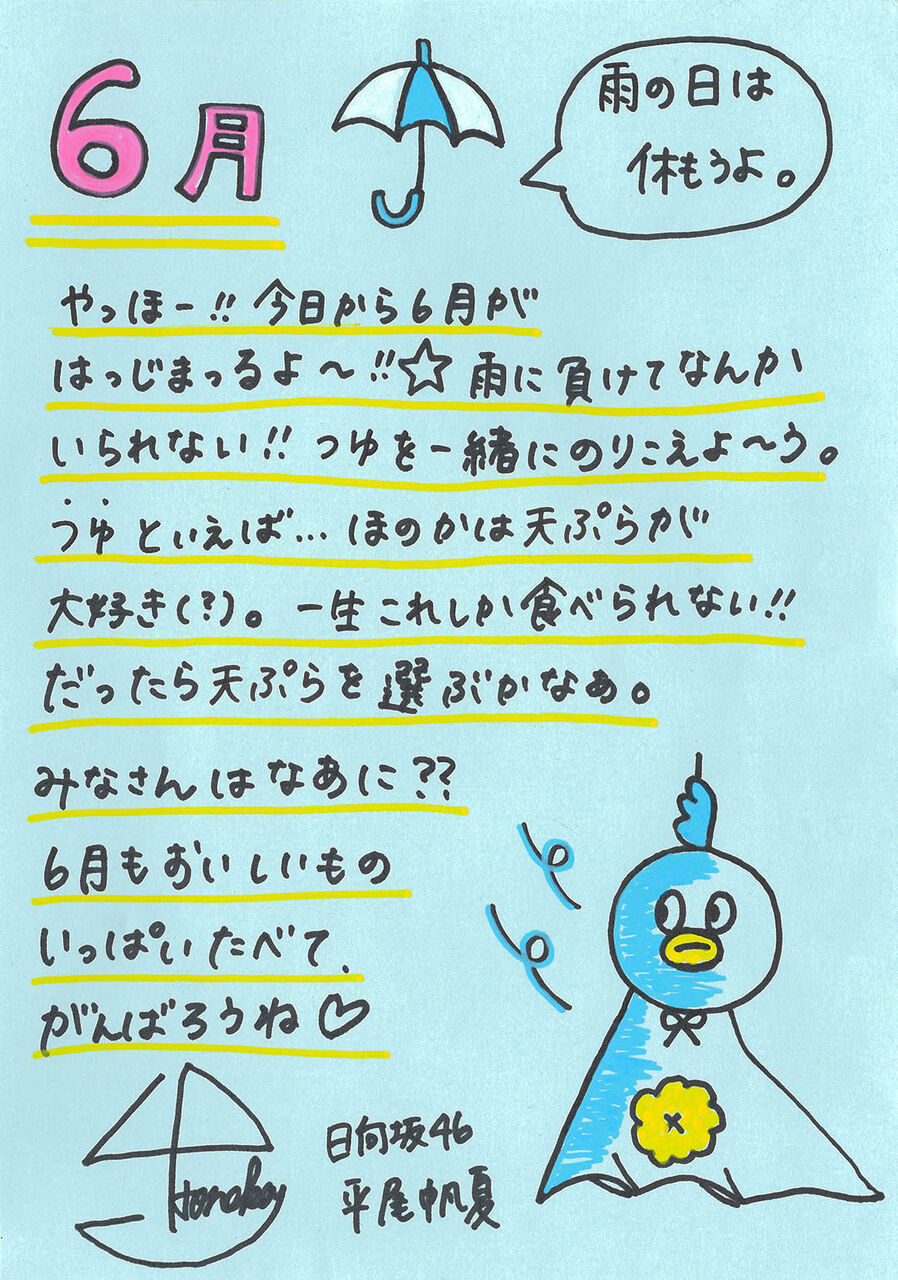 6月
雨の日は
休もうよ。
やっほー!! 今日から6月が
はっじまっるよ〜!!☆ 雨に負けてなんか
いられない!! つゆを一緒にのりこえよ〜う。
つゆといえば… ほのかは天ぷらが
大好き(?)。一生これしか食べられない!!
だったら天ぷらを選ぶかなぁ。
みなさんはなあに??
6月もおいしいもの
いっぱいたべて、
がんばろうね♡
日向坂46
平尾帆夏